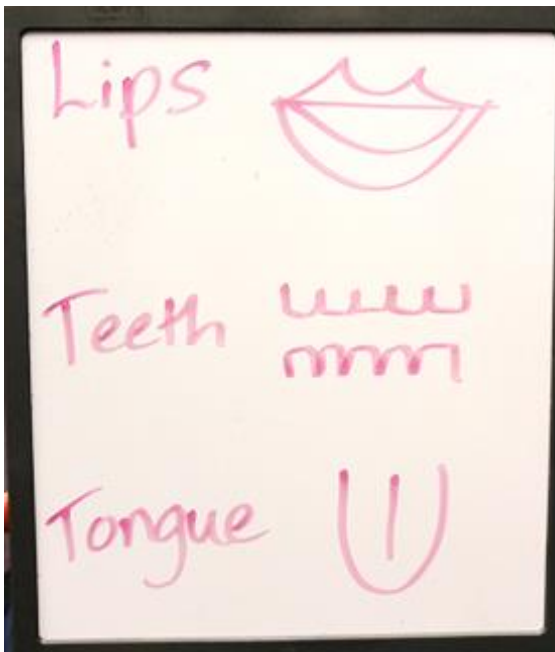 Lips
Teeth
Tongue